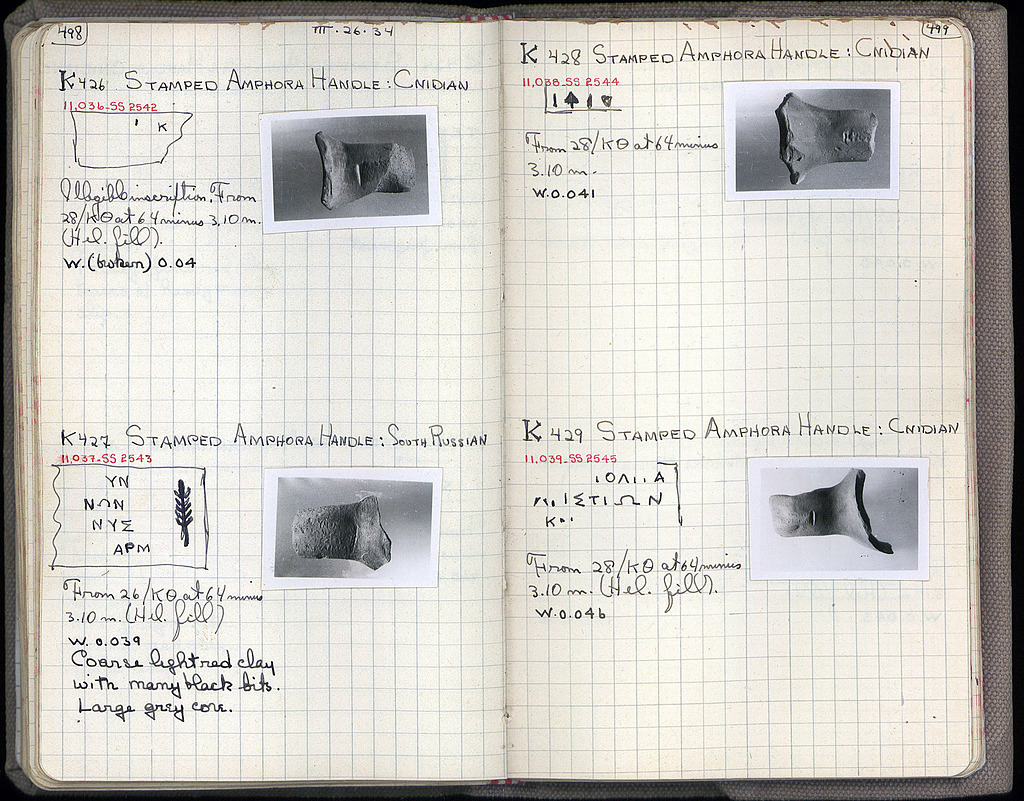 498
III·26·34
K 426 STAMPED AMPHORA HANDLE: CNIDIAN
11,036-SS 2542
K
Illegible inscription. From
28/ΚΘ at 64 minus 3.10 m.
(Hel. fill).
W. (broken) 0.04
K 427 STAMPED AMPHORA HANDLE: SOUTH RUSSIAN
11,037-SS 2543
ΥΝ
ΝΩΝ
ΝΥΣ
ΑΡΜ
From 26/ΚΘ at 64 minus
3.10 m. (Hel. fill)
W. 0.039
Coarse light red clay
with many black bits.
Large grey core.
499
K 428 STAMPED AMPHORA HANDLE: CNIDIAN
11,038-SS 2544
From 28/ΚΘ at 64 minus
3.10 m.
W. 0.041
K 429 STAMPED AMPHORA HANDLE: CNIDIAN
11,039-SS 2545
ΙΣΤΙΩΝ
Κ
From 28/ΚΘ at 64 minus
3.10 m. (Hel. fill).
W. 0.046